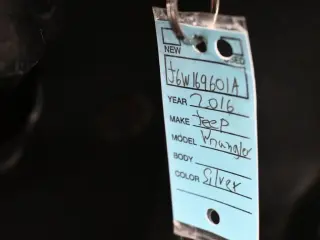 NEW
J6W169601A
YEAR 2016
MAKE Jeep
MODEL Wrangler
BODY
COLOR Silver